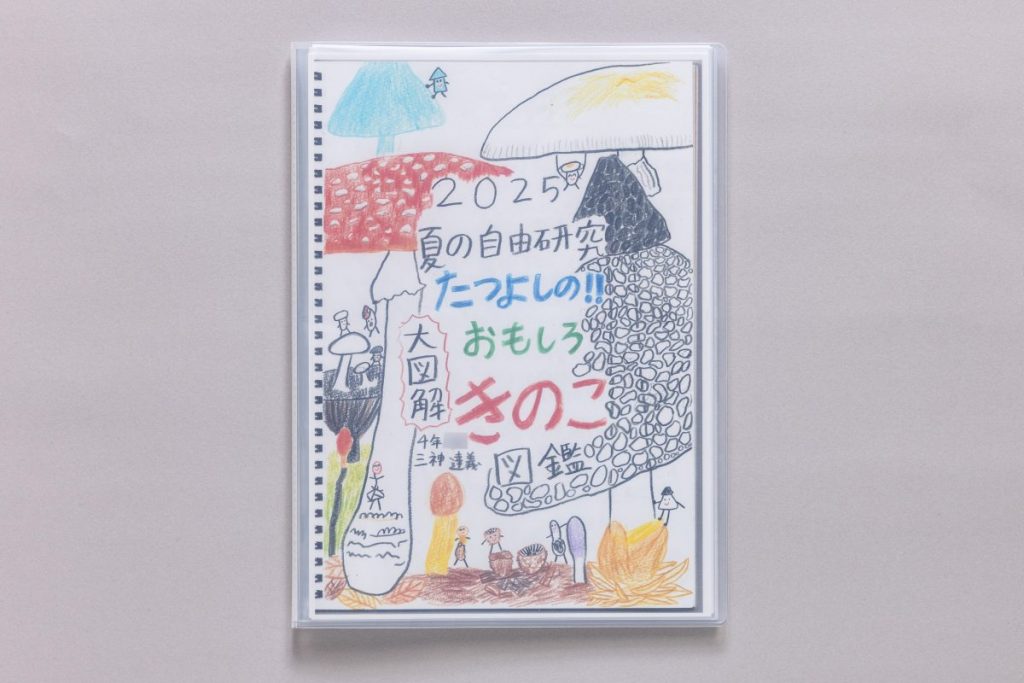 2025
夏の自由研究
たつよしの!!
大図解
おもしろ
きのこ
図鑑
4年
三神 達義